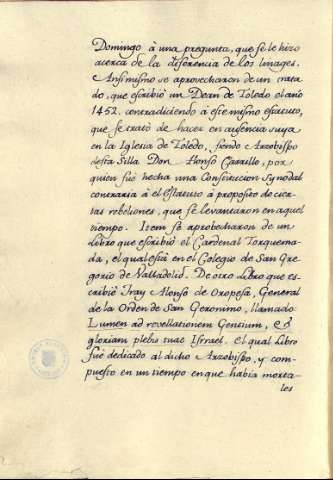 Domingo à una pregunta, que se le hizo
acerca de la diferencia de los linages.
Ansimismo se aprovecharon de un trata
do, que escribió un Dean de Toledo el año
1452. contradiciendo à este mismo estatuto,
que se trató de hacer en ausencia suya
en la Iglesia de Toledo, siendo Arzobispo
desta Silla Don Alonso Carrillo, por
quien fué hecha una Constitucion Synodal
contraria à el Estatuto à proposito de cier
tas rebeliones, que se levantaron en aquel
tiempo. Item se aprobecharon de un
libro que escribió el Cardenal Torquema
da, el qual está en el Colegio de San Gre
gorio de Valladolid. De otro libro que es
cribiò Fray Alonso de Oropesa, General
de la Orden de San Geronimo, llamado:
Lumen ad revellationem Gentium, et
gloriam plebis tuae Isrrael. el qual libro
fué dedicado al dicho Arzobispo, y com
puesto en un tiempo en que había morta
les